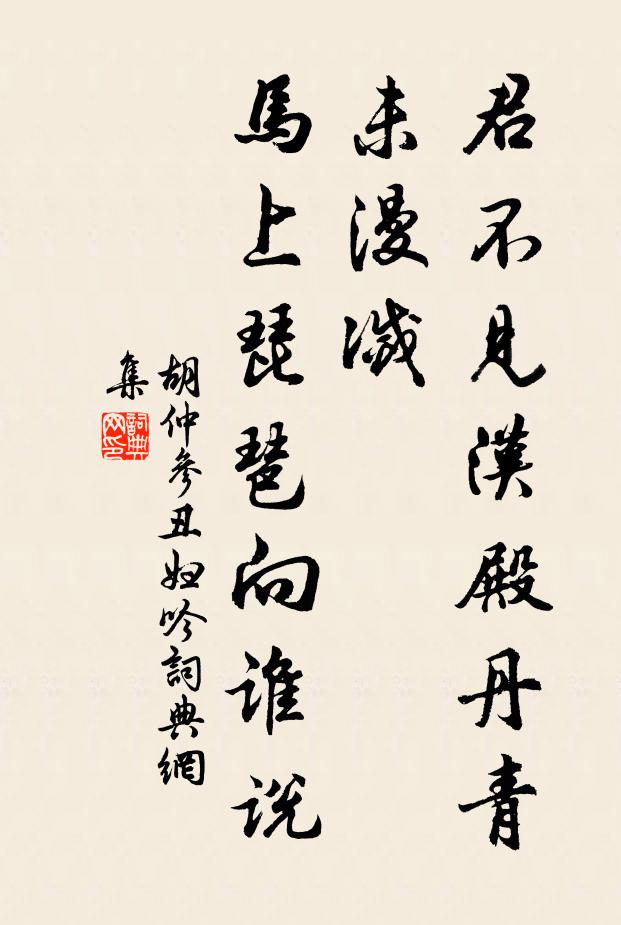 君不見漢殿丹青
未漫滅
馬上琵琶向誰說
胡仲參丑婦吟詞典網
集
詞典
网印